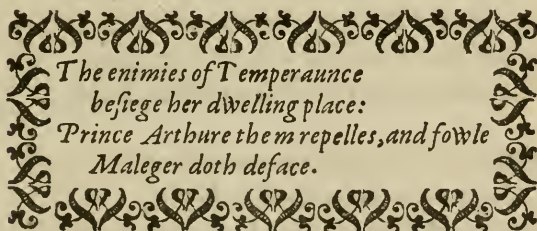 The enimies of Temperaunce
beſiege her dwelling place:
Prince Arthure them repelles, and fowle
Maleger doth deface.